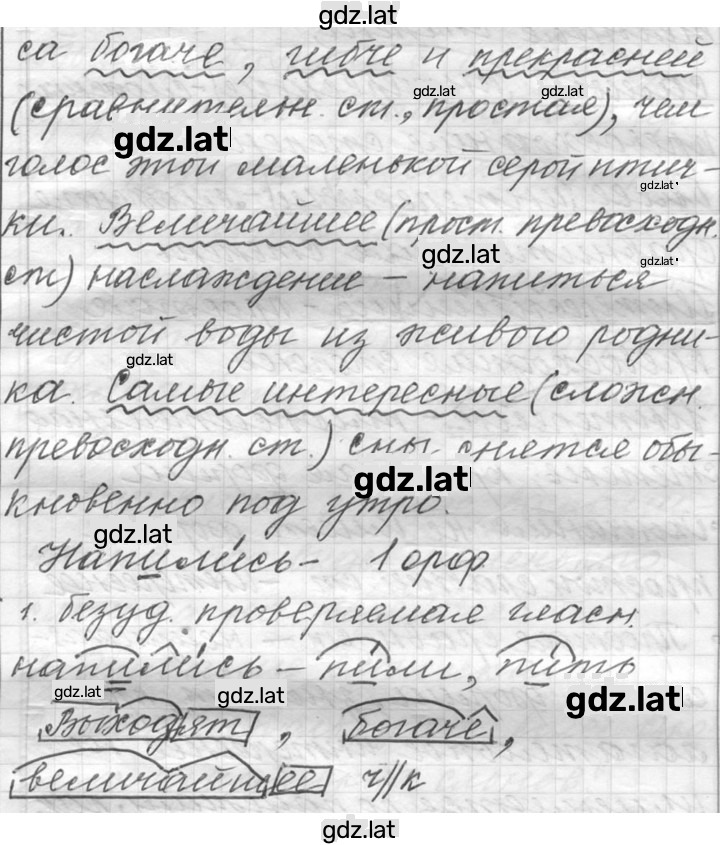 gdz.lat
са богаче, гибче и прекрасней
gdz.lat gdz.lat
(сравнительн. ст., простая), чем
gdz.lat
голос этой маленькой серой птич-
gdz.lat
ки. Величайшее (прост. превосходн.
gdz.lat gdz.lat
ст) наслаждение – напиться
чистой воды из живого родни-
gdz.lat
ка. Самые интересные (сложн.
превосходн. ст.) сны снятся обы-
gdz.lat
кновенно под утро.
gdz.lat
Напились – 1 орф.
1. безуд. проверяемая гласн.
напились – пили, пить
gdz.lat gdz.lat gdz.lat
Выходят, богаче,
величайшее ч//к
gdz.lat